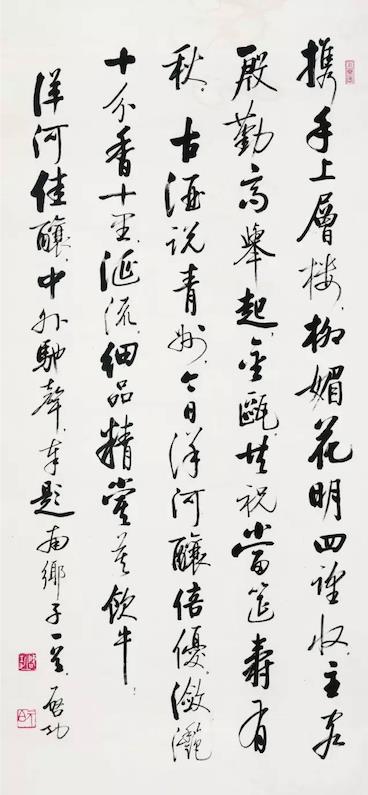 攜手上層樓柳媚花明四望收主客
殷勤高舉起金甌共祝當筵壽有
秋古酒說青州今日洋河釀倍優瀲灩
十分香十里滙流細品精嘗莫飲牛
洋河佳釀中外馳聲率題南鄉子一首啟功